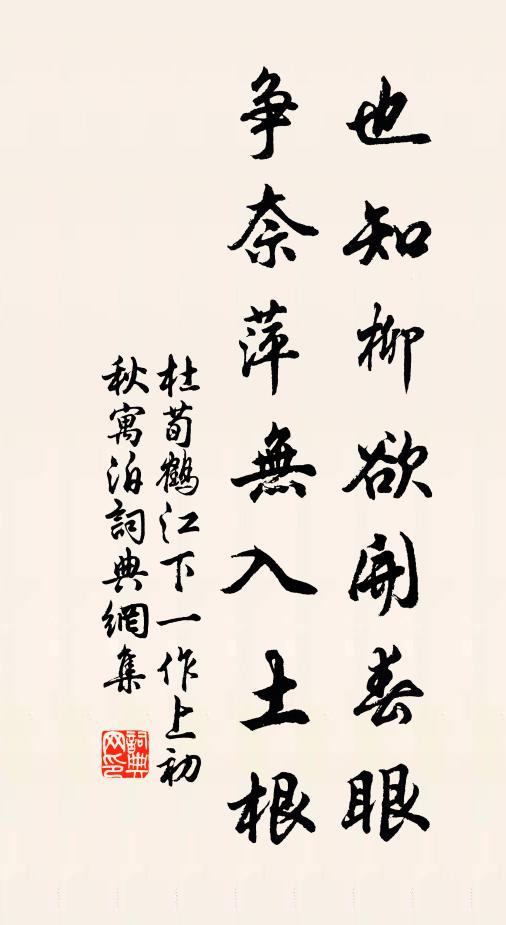 也知柳欲開春眼
爭奈萍無入土根
杜荀鶴江下一作上初
秋寓泊詞典網集
詞典
网印